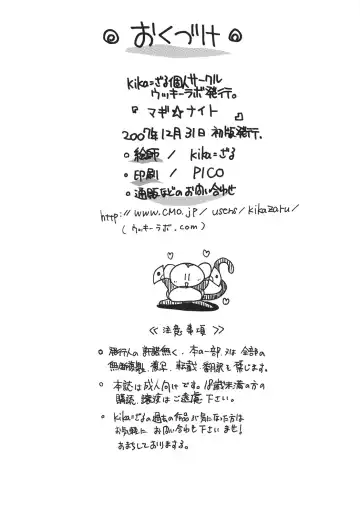 ◎ おくづけ ◎
kika=ざる個人サークル
ウッキーラボ発行。
『マギ☆ナイト』
2007年12月31日 初版発行.
○絵師 / kika=ざる
○印刷 / PICO
○通販などのお問い合わせ
http://www.cmo.jp/users/kikazaru/
(ウッキーラボ.com)
≪注意事項≫
○ 発行人の許諾無く、本の一部又は全部の
無断複製、転載、翻訳を禁じます。
○ 本誌は成人向けです。18歳未満の方の
購読、譲渡はご遠慮下さい。
○ kika=ざるの過去の作品が気になった方は
お気軽にお問い合わせ下さいませ!
おまちしております。